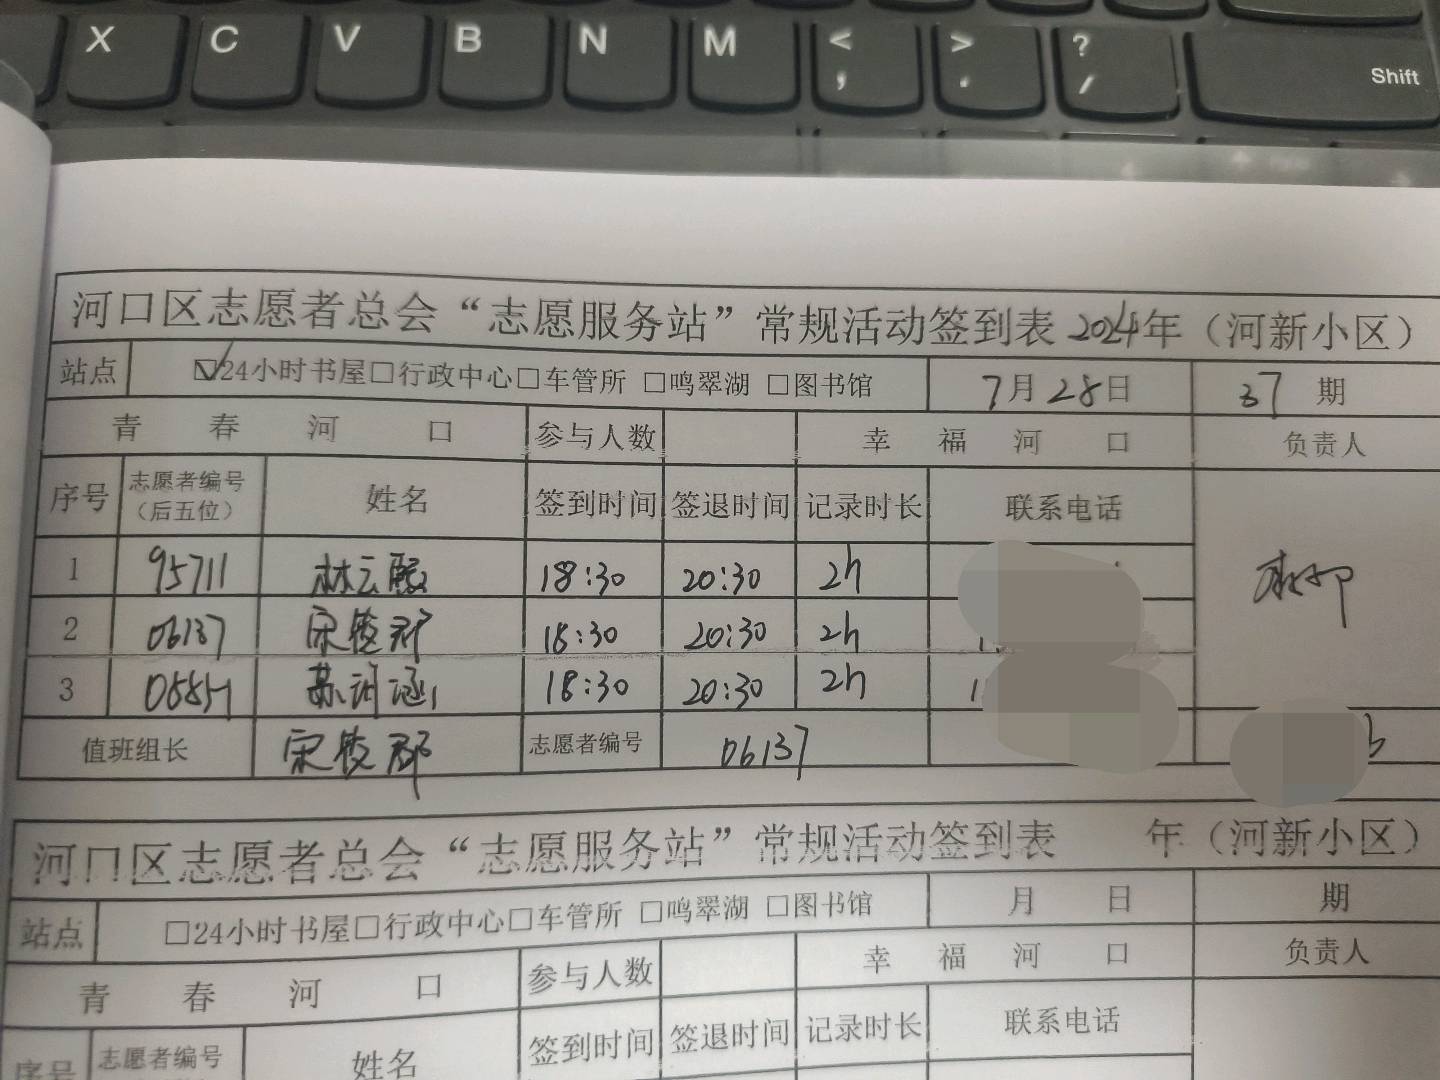 X C V B N M < , > . ? / Shift
河口区志愿者总会“志愿服务站”常规活动签到表 2024年（河新小区）
站点 ☑24小时书屋□行政中心□车管所 □鸣翠湖 □图书馆 7月28日 37期
青春河口 参与人数 幸福河口 负责人
序号 志愿者编号（后五位） 姓名 签到时间 签退时间 记录时长 联系电话
1 95711 林云 18:30 20:30 2h
2 06137 宋俊郡 18:30 20:30 2h
3 苏诗涵 18:30 20:30 2h
值班组长 宋俊郡 志愿者编号 06137
河口区志愿者总会“志愿服务站”常规活动签到表 年（河新小区）
站点 □24小时书屋□行政中心□车管所 □鸣翠湖 □图书馆 月 日 期
青春河口 参与人数 幸福河口 负责人
序号 志愿者编号 姓名 签到时间 签退时间 记录时长 联系电话